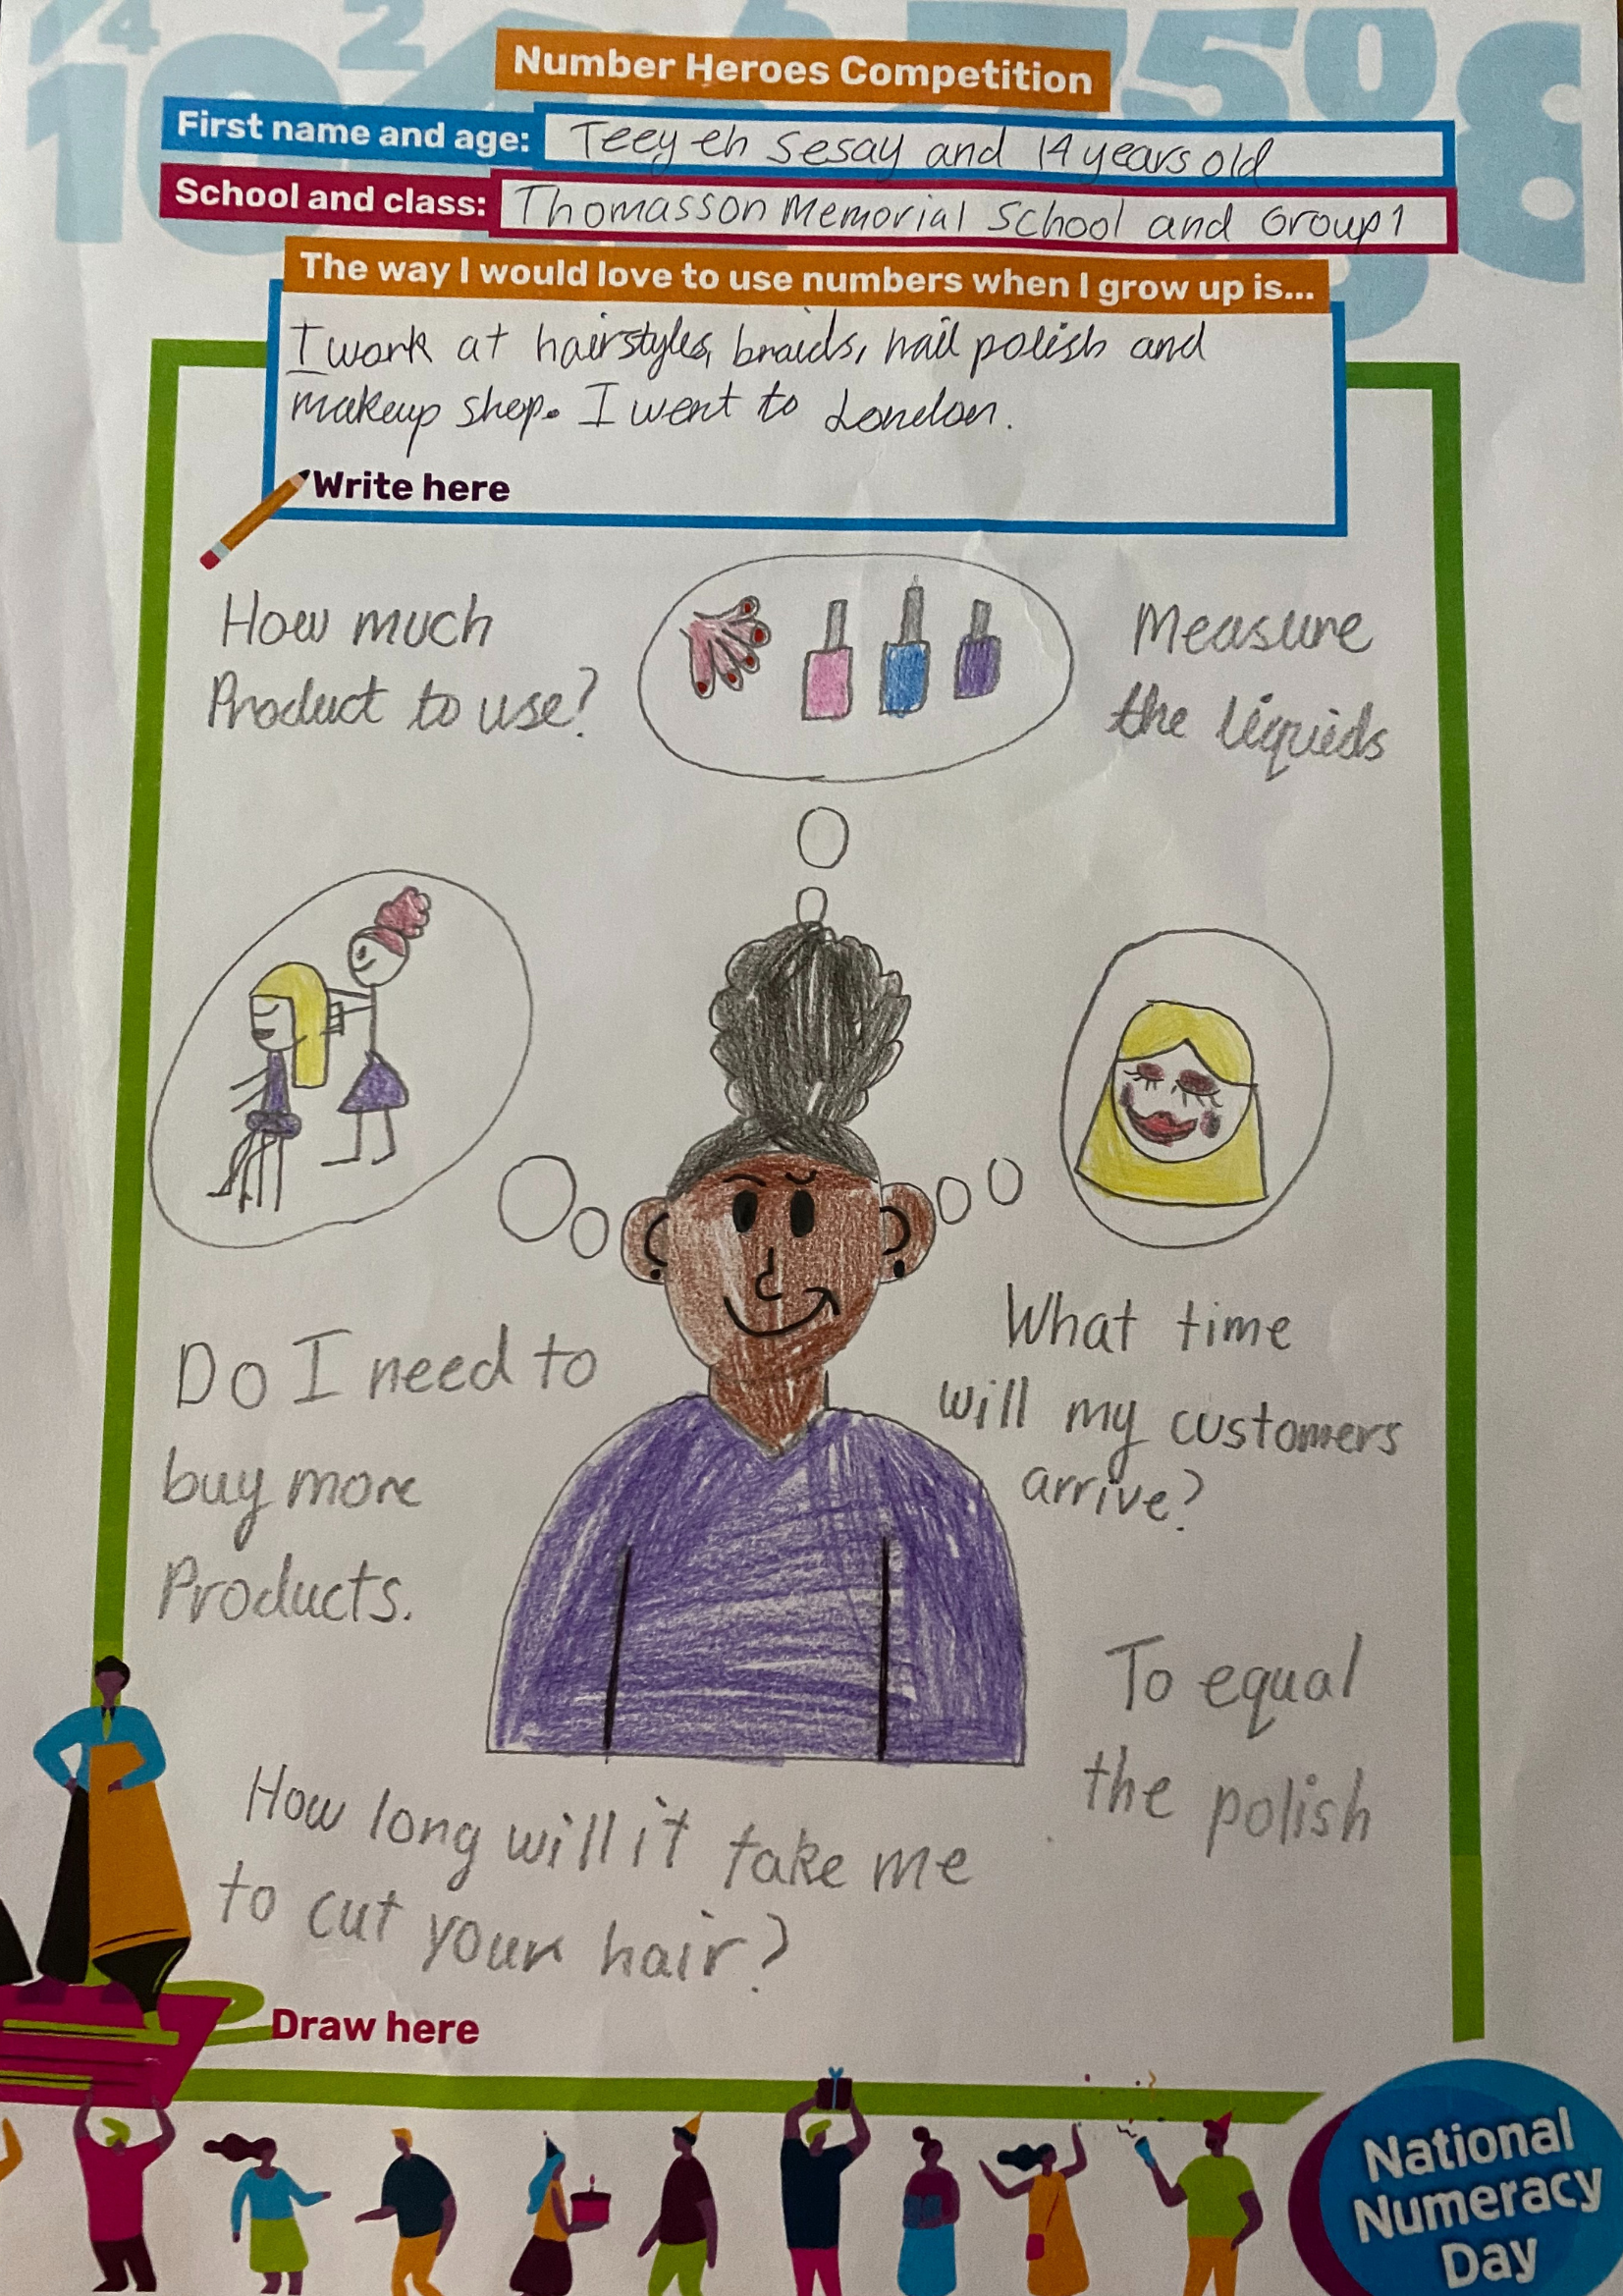 Number Heroes Competition
First name and age: Teeyeh Sesay and 14 years old
School and class: Thomasson Memorial School and Group 1
The way I would love to use numbers when I grow up is...
I work at hairstyles, braids, nail polish and
makeup shop. I went to London.
Write here
How much
Product to use?
Measure
the liquids
Do I need to
buy more
Products.
What time
will my customers
arrive?
To equal
the polish
How long will it take me
to cut your hair?
Draw here
National
Numeracy
Day